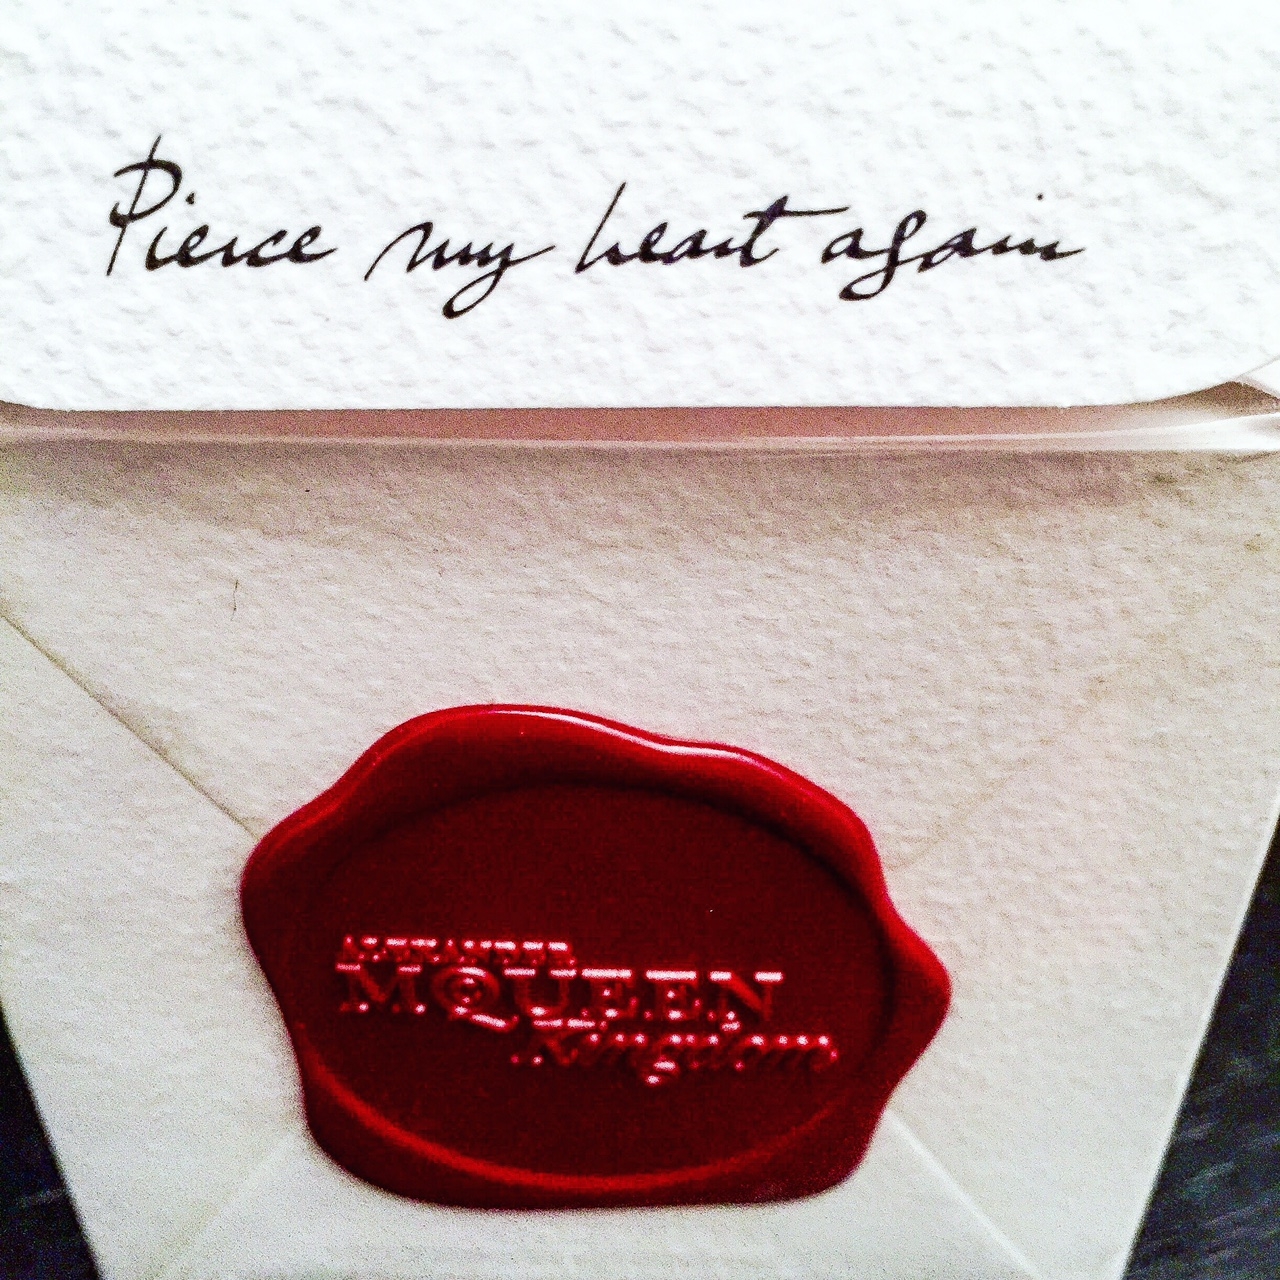 Pierce my heart again
ALEXANDER
MCQUEEN
Kingdom